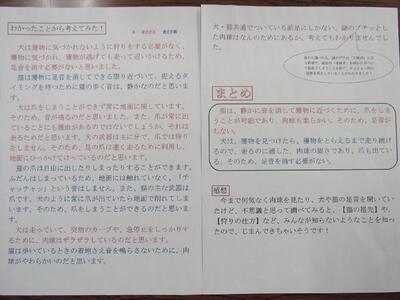 わかったことから考えてみた！
犬は獲物に気づかれないように狩りをする必要がなく、
獲物に気づかれ、獲物が逃げても走って追いかけるため、
足音を消す必要がないのだと思います。
猫は獲物に足音を消してできる限り近づいて、捉えるタ
イミングを待つために猫の歩く音は、静かなのだと思いま
す。
犬は爪をしまうことができず常に地面に接しています。
そのため、音が鳴るのだと思いました。また、爪が常に出
ていることにも理由があるのではないでしょうか。それは
走るためだと思います。犬の武器は主に歯で、爪では狩り
をしません。そのため、足の爪は速く走るために利用し、
地面にひっかけてけっているのだと思います。
猫の爪は自由に出したりしまったりすることができます。
ふだんはしまっているため、地面には触れていなく、「チ
ャッチャッ」という音はしません。また、猫の主な武器は爪
です。犬のように常に爪が出ていたら地面で削れてしま
います。そのため、爪をしまうことができるのだと思いま
す。
犬は走っていて、突然のカーブや、急停止をしっかりす
るために、肉球はザラザラしているのだと思います。
猫は歩いているときの着地さえ音を鳴らさないために、肉
球がやわらかいのだと思います。
犬・猫共通でついている前足にしかない、謎のプチッとし
た肉球はなんのためにあるか、考えてもわかりませんでし
た。
まとめ
猫は、静かに音を消して獲物に近づくために、爪をしま
うことが可能であり、肉球も柔らかい。そのため、足音が
しない。
犬は、獲物を見つけたら、獲物をとらえるまで走り続け
るので、走るのに適した、肉球の固さであり、爪も出てい
る。そのため、足音を消す必要がない。
感想
今まで何気なく肉球を見たり、犬や猫の足音を聞いてい
たけど、不思議と思って調べてみると、【猫の祖先】や、
【狩りの仕方】など、みんなが知らないようなことを知った
ので、じまんできちゃいそうです！